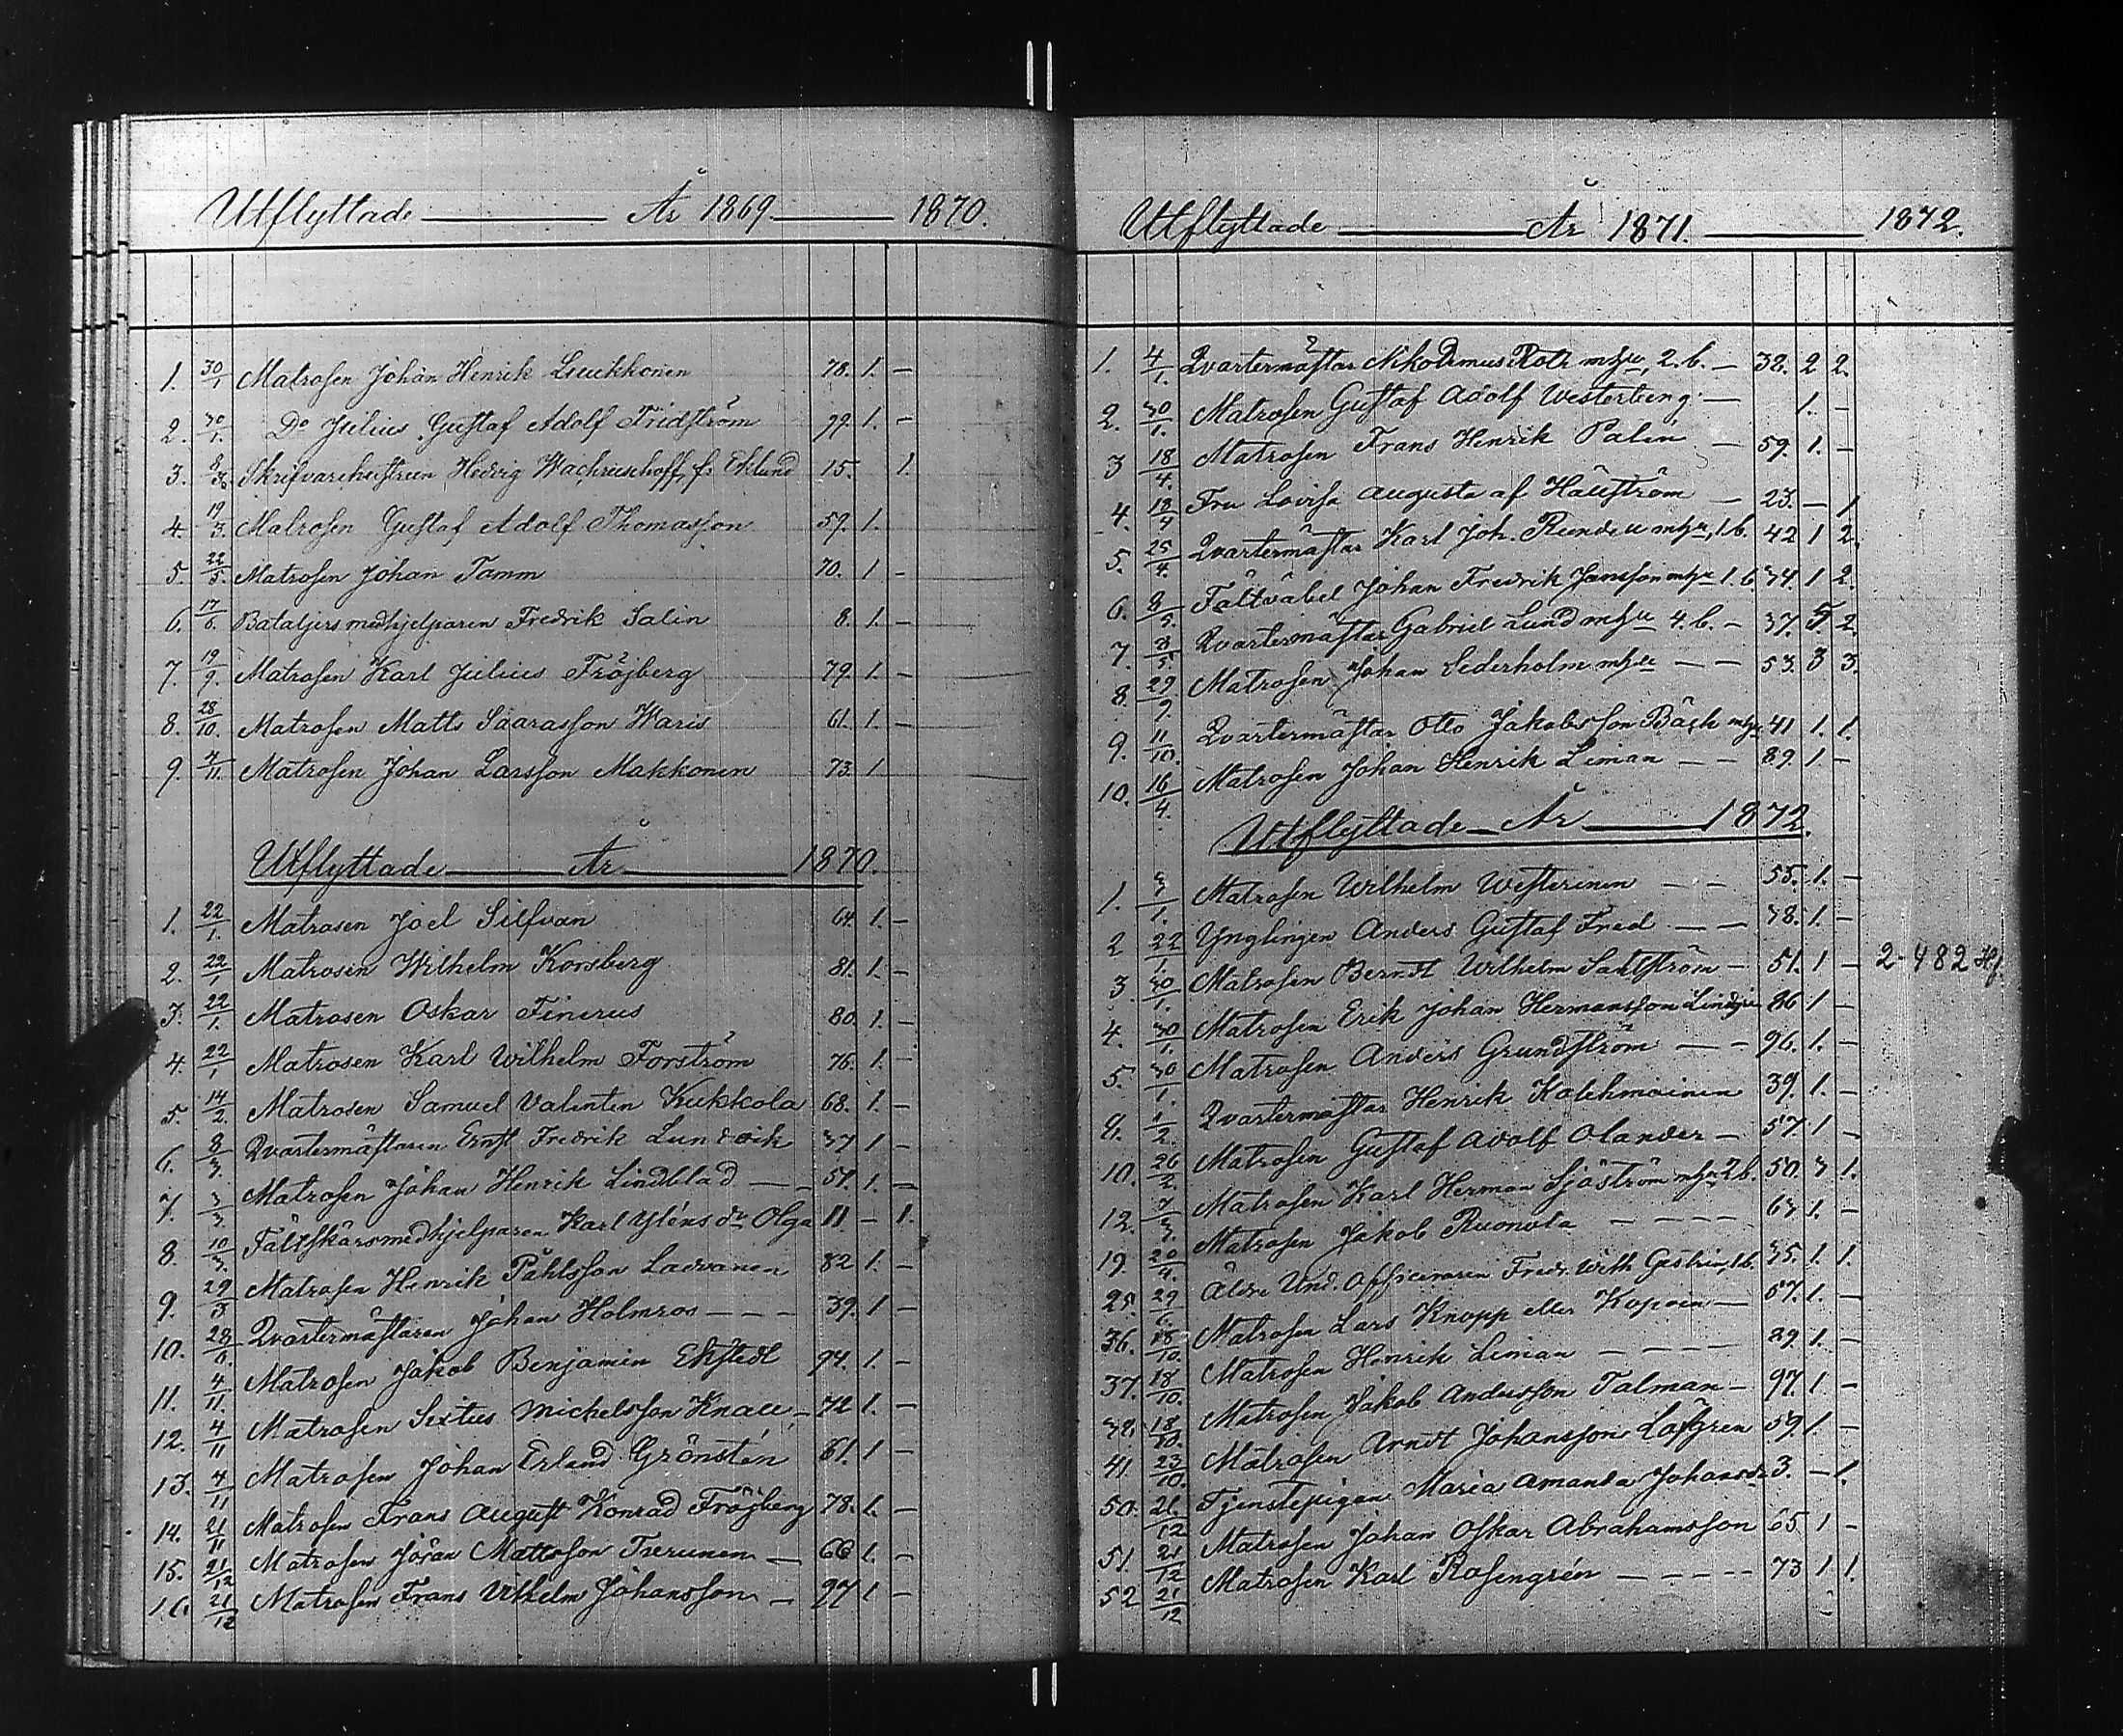 Utflyttade År 1869. 1870.
1. 30/1 Matrosen Johan Henrik Luukkonen 78. 1. –
2. 30/1. Do Julius Gustaf Adolf Fridström 99. 1. –
3. Skrifvarehustrun Hedvig Wachruschoff, f. Eklund 15. 1.
4. 19/3. Matrosen Gustaf Adolf Thomasson 59. 1.
5. 22/5. Matrosen Johan Tamm 70. 1 –
6. 17/6. Bataljersmedhjelparen Fredrik Salin 8. 1. –
7. 19/9. Matrosen Karl Julius Fröjberg 79. 1. –
8. 28/10. Matrosen Matts Saarasson Waris 61. 1. –
9. 4/11. Matrosen Johan Larsson Makkonen 73. 1
Utflyttade År 1870.
1. 22/1. Matrosen Joel Silfvan 64. 1. –
2. 22/1 Matrosen Wilhelm Korsberg 81. 1. –
3. 22/1. Matrosen Oskar Finerus 80. 1. –
4. 22/1 Matrosen Karl Wilhelm Forström 76. 1. –
5. 14/2. Matrosen Samuel Valentin Kukkola 68. 1. –
6. 8/3. Qvartermästaren Ernst Fredrik Lundvik 37 1 –
7. 3/3. Matrosen Johan Henrik Lindblad – – 51. 1. –
8. 10/3. Fältskärsmedhjelparen Karl Yléns dr Olga 11 – 1.
9. 29/3 Matrosen Henrik Påhlsson Ladvanen 82 1. –
10. 28/6. Qvartermästaren Johan Holmros – – – 39. 1 –
11. 4/11. Matrosen Jakob Benjamin Ekstedt 94. 1. –
12. 4/11 Matrosen Sixtus Michelsson Knau – 72 1. –
13. 4/11 Matrosen Johan Erland Grönstén 61. 1 –
14. 21/11 Matrosen Frans August Konrad Fröjberg 78. 1. –
15. 21/12 Matrosen Jöran Mattsson Terunen – 66 1. –
16. 21/12 Matrosen Frans Vilhelm Johansson – 97 1 –
Utflyttade År 1871. 1872.
1. 4/1. Qvartermästar Nikodemus Roth m hu, 2. b. – 38. 2 2.
2. 30/1. Matrosen Gustaf Adolf Westerberg – 1. –
3 18/4. Matrosen Frans Henrik Palén – 59. 1. –
4. 18/4 Fru Lovisa Augusta af Hällström – 23. – 1
5. 25/4. Qvartermästar Karl Joh. Runde m hu, 1 b. 42 1 2.
6. 2/5. Fältväbel Johan Fredrik Jansson m hu 1. b 34. 1 2.
7. 3/5 Qvartermästar Gabriel Lund m hu 4. b. – 37. 5. 2.
8. 29/9. Matrosen Johan Sederholm m hu – – 53. 3 3.
9. 11/10. Qvartermästar Otto Jakobsson Bäck m hu 41 1. 1.
10. 16/4. Matrosen Johan Henrik Liman – – 89 1 –
Utflyttade År 1872.
1. Matrosen Wilhelm Westerinen – – 55. 1. –
2 22/1. Ynglingen Anders Gustaf Fred – – 38. 1. –
3 30/1. Matrosen Berndt Wilhelm Sahlström – 51. 1 – 2-482
4. 30/1. Matrosen Erik Johan Hermansson 86 1 –
5. 30/1. Matrosen Anders Grundström – – 96. 1. –
8. 1/2. Qvartermästar Henrik Kolehmainen 39. 1. –
10. 26/2. Matrosen Gustaf Adolf Olander – 57. 1 –
12. 7/3. Matrosen Karl Herman Sjöström m hu 2 b. 50. 3 1.
19. 20/4. Matrosen Jakob Ruonola – – – – 63 1. –
25. 29/6. Äldre Und. Officeraren Fredr. Wilh. Gestrin, 1 b. 35. 1. 1.
36. 18/10. Matrosen Lars Knopp eller Kopoin – 57. 1. –
37. 18/10. Matrosen Henrik Liman – – – – 89. 1. –
38. 18/10. Matrosen Jakob Andersson Talman – 97. 1 –
41 23/10. Matrosen Arndt Johansson Löfgren 59. 1 –
50. 21/12 Tjenstepigan Maria Amanda Johansdr 3. – 1.
51. 21/12 Matrosen Johan Oskar Abrahamsson 65 1 –
52 21/12 Matrosen Karl Rosengrén – – – – 73 1 1.